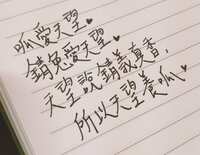 呱愛天望♥
錆兔愛天望♥
天望說錆兔真香,
所以天望養呱♥